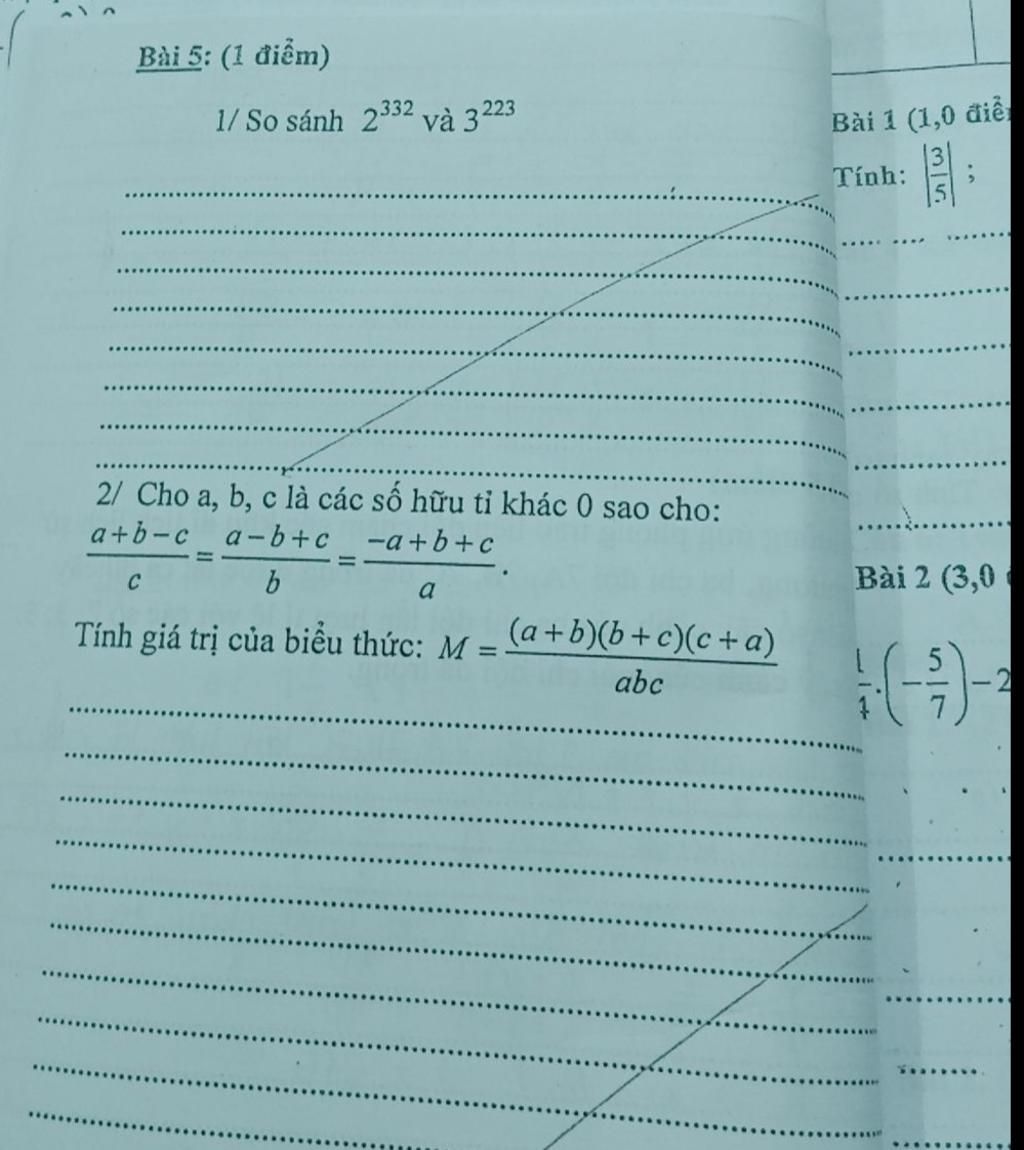 Bài 5: (1 điểm)
1/ So sánh 2^332 và 3^223
2/ Cho a, b, c là các số hữu tỉ khác 0 sao cho:
(a+b−c)/c = (a−b+c)/b = (−a+b+c)/a .
Tính giá trị của biểu thức: M = (a+b)(b+c)(c+a)/abc
Bài 1 (1,0
Tính: |3/5| ;
Bài 2 (3,0
.(−5/7)−2